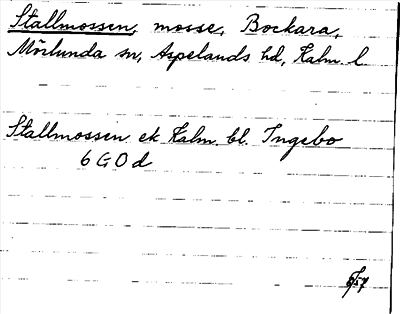 Stallmossen, mosse, Bockara,
Mörlunda sn, Aspelands hd, Kalm. l.
Stallmossen ek Kalm. bl. Ingebo
6 G 0 d